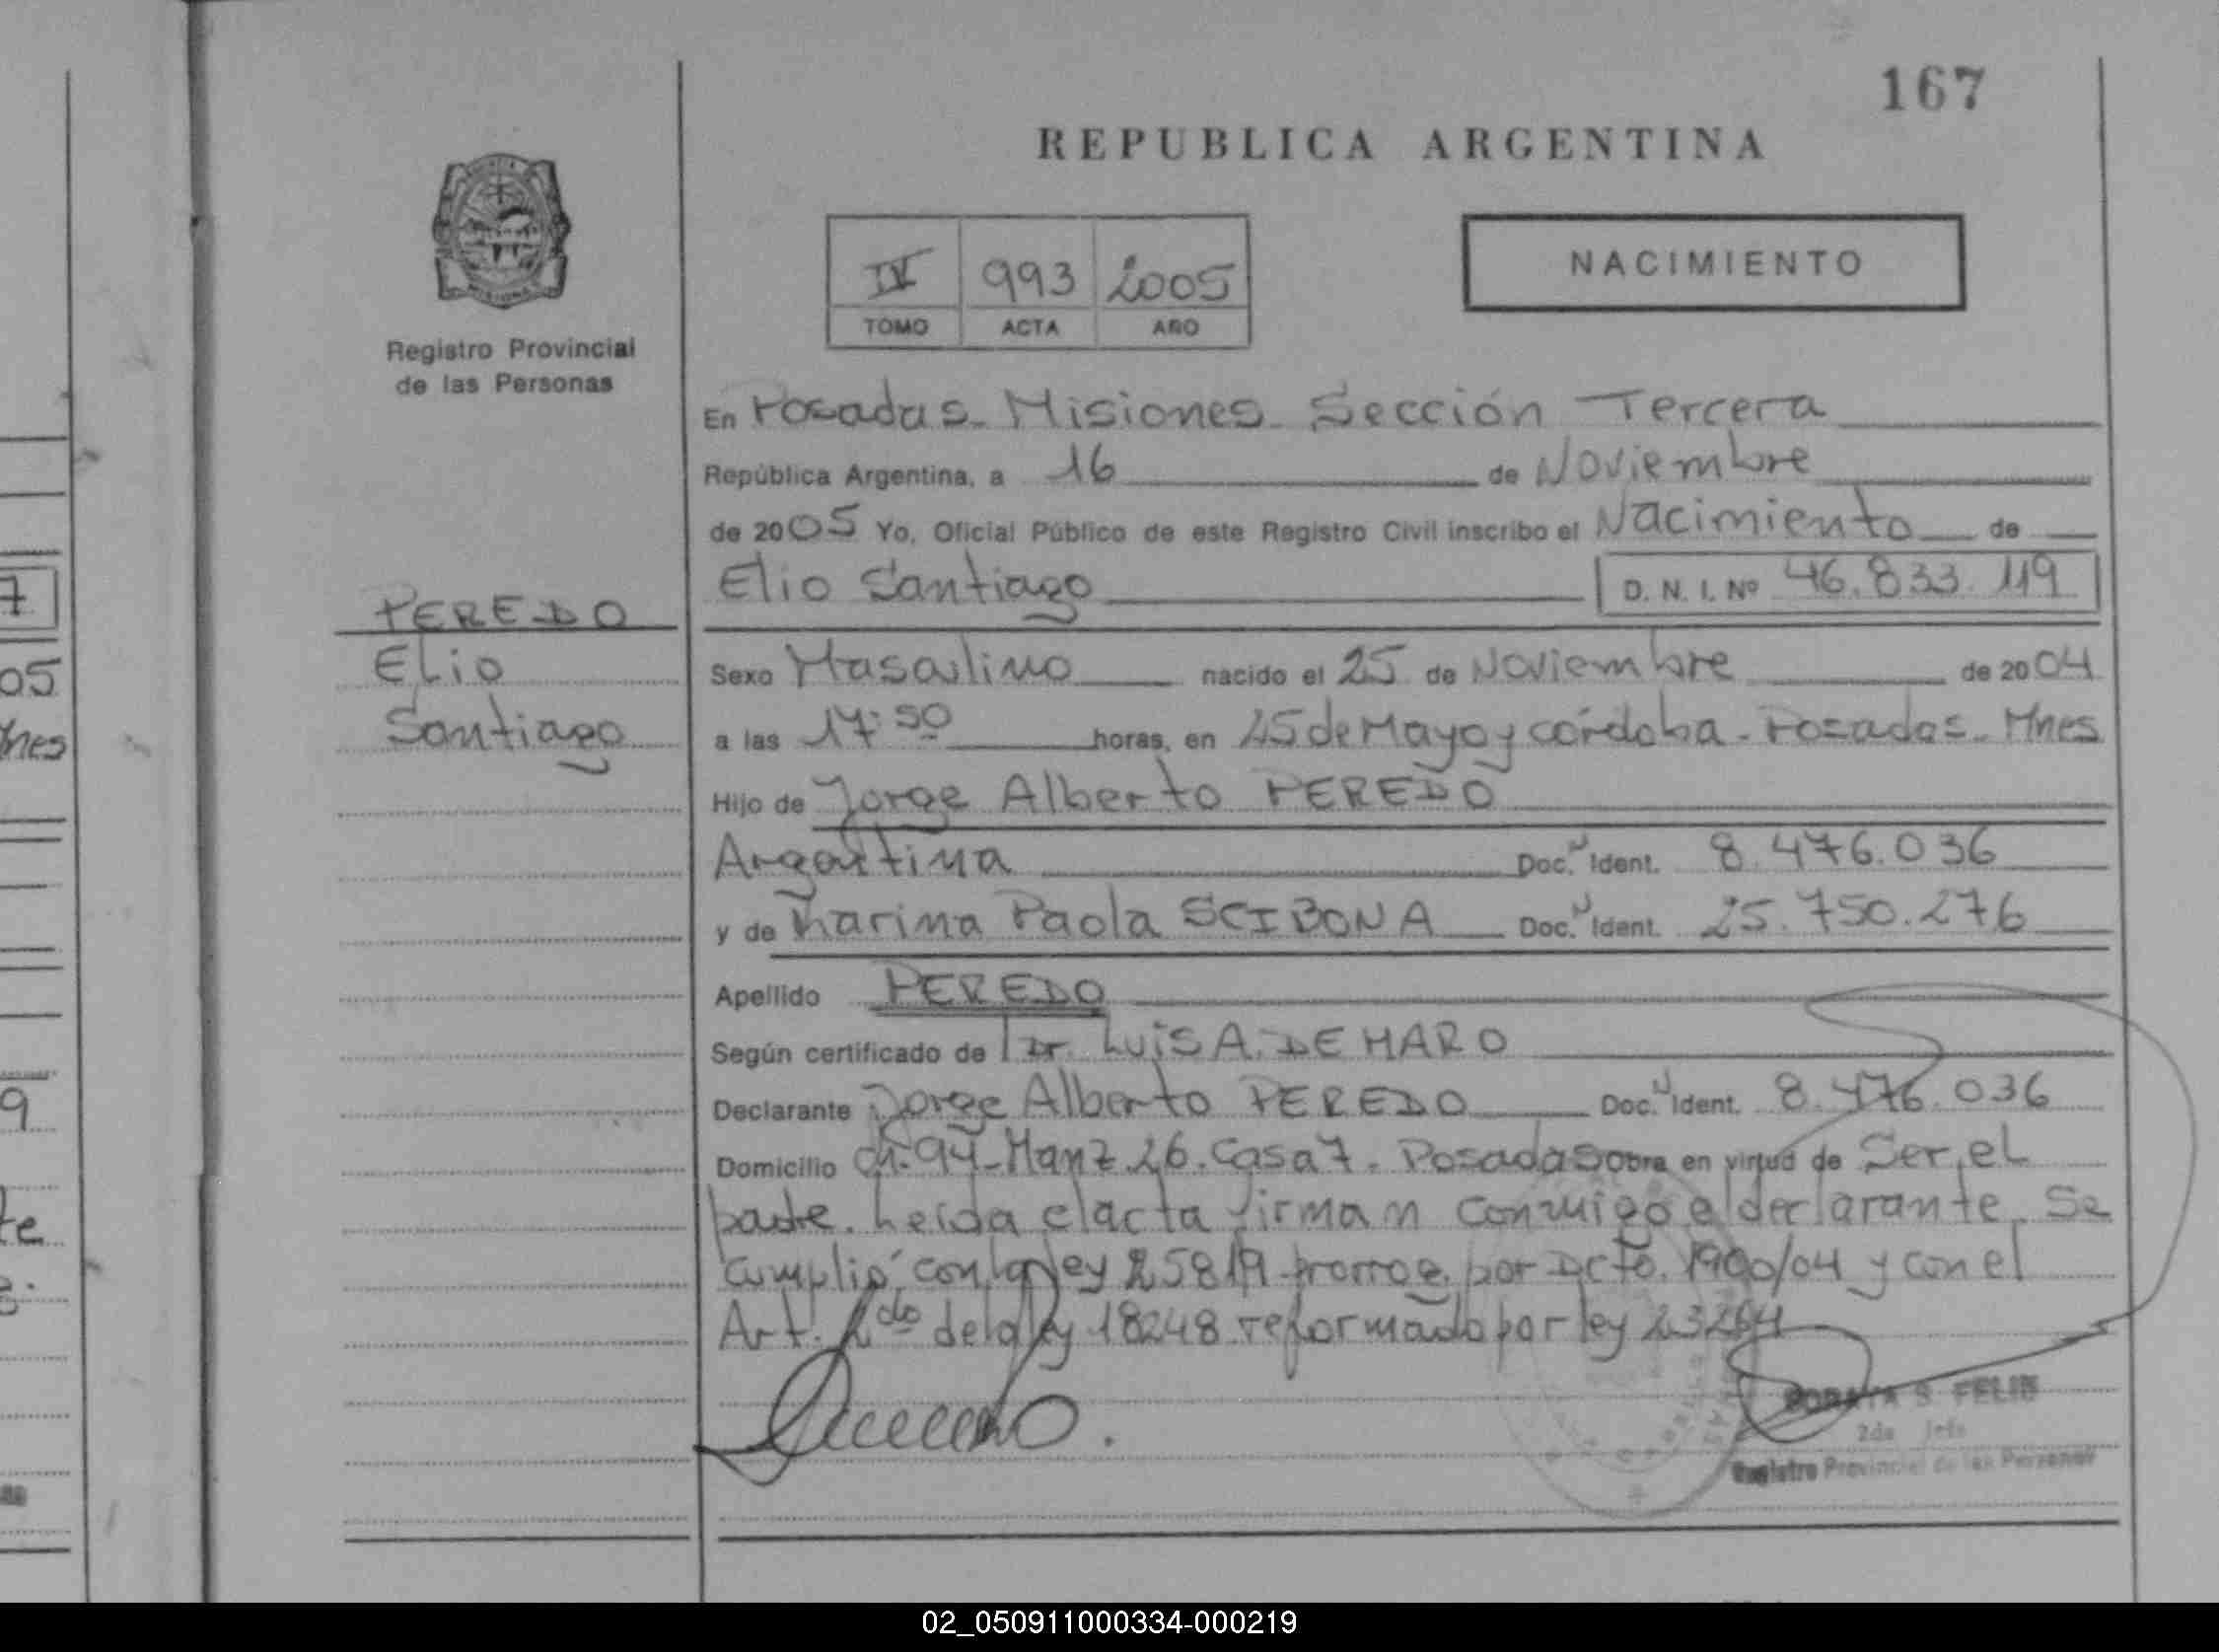 167
REPUBLICA ARGENTINA
IV 993 2005
TOMO ACTA AÑO
NACIMIENTO
Registro Provincial
de las Personas
En Posadas - Misiones - Sección Tercera
República Argentina, a 16 de Noviembre
de 2005 Yo, Oficial Público de este Registro Civil inscribo el Nacimiento de
Elio Santiago D. N. I. Nº 46.833.119
PEREDO
Elio
Santiago
Sexo Masculino nacido el 25 de Noviembre de 2004
a las 17:50 horas, en 25 de Mayo y córdoba - Posadas - Mnes
Hijo de Jorge Alberto PEREDO
Argentina Doc. Ident. 8.476.036
y de Karina Paola SCIBONA Doc. Ident. 25.750.276
Apellido PEREDO
Según certificado de Dr. LUIS A. DE HARO
Declarante Jorge Alberto PEREDO Doc. Ident. 8.476.036
Domicilio Ch. 94 - Manz 26. Casa 7. Posadas obra en virtud de Ser el
padre. Leída el acta firman conmigo el declarante. Se
cumplió con la ley 25819 prorrog. por Dcto. 1900/04 y con el
Art. 2do de la ley 18248 reformado por ley 23264
S. FELIB
2da Jefe
Registro Provincial de las Personas
7
05
Mnes
9
te
02_050911000334-000219